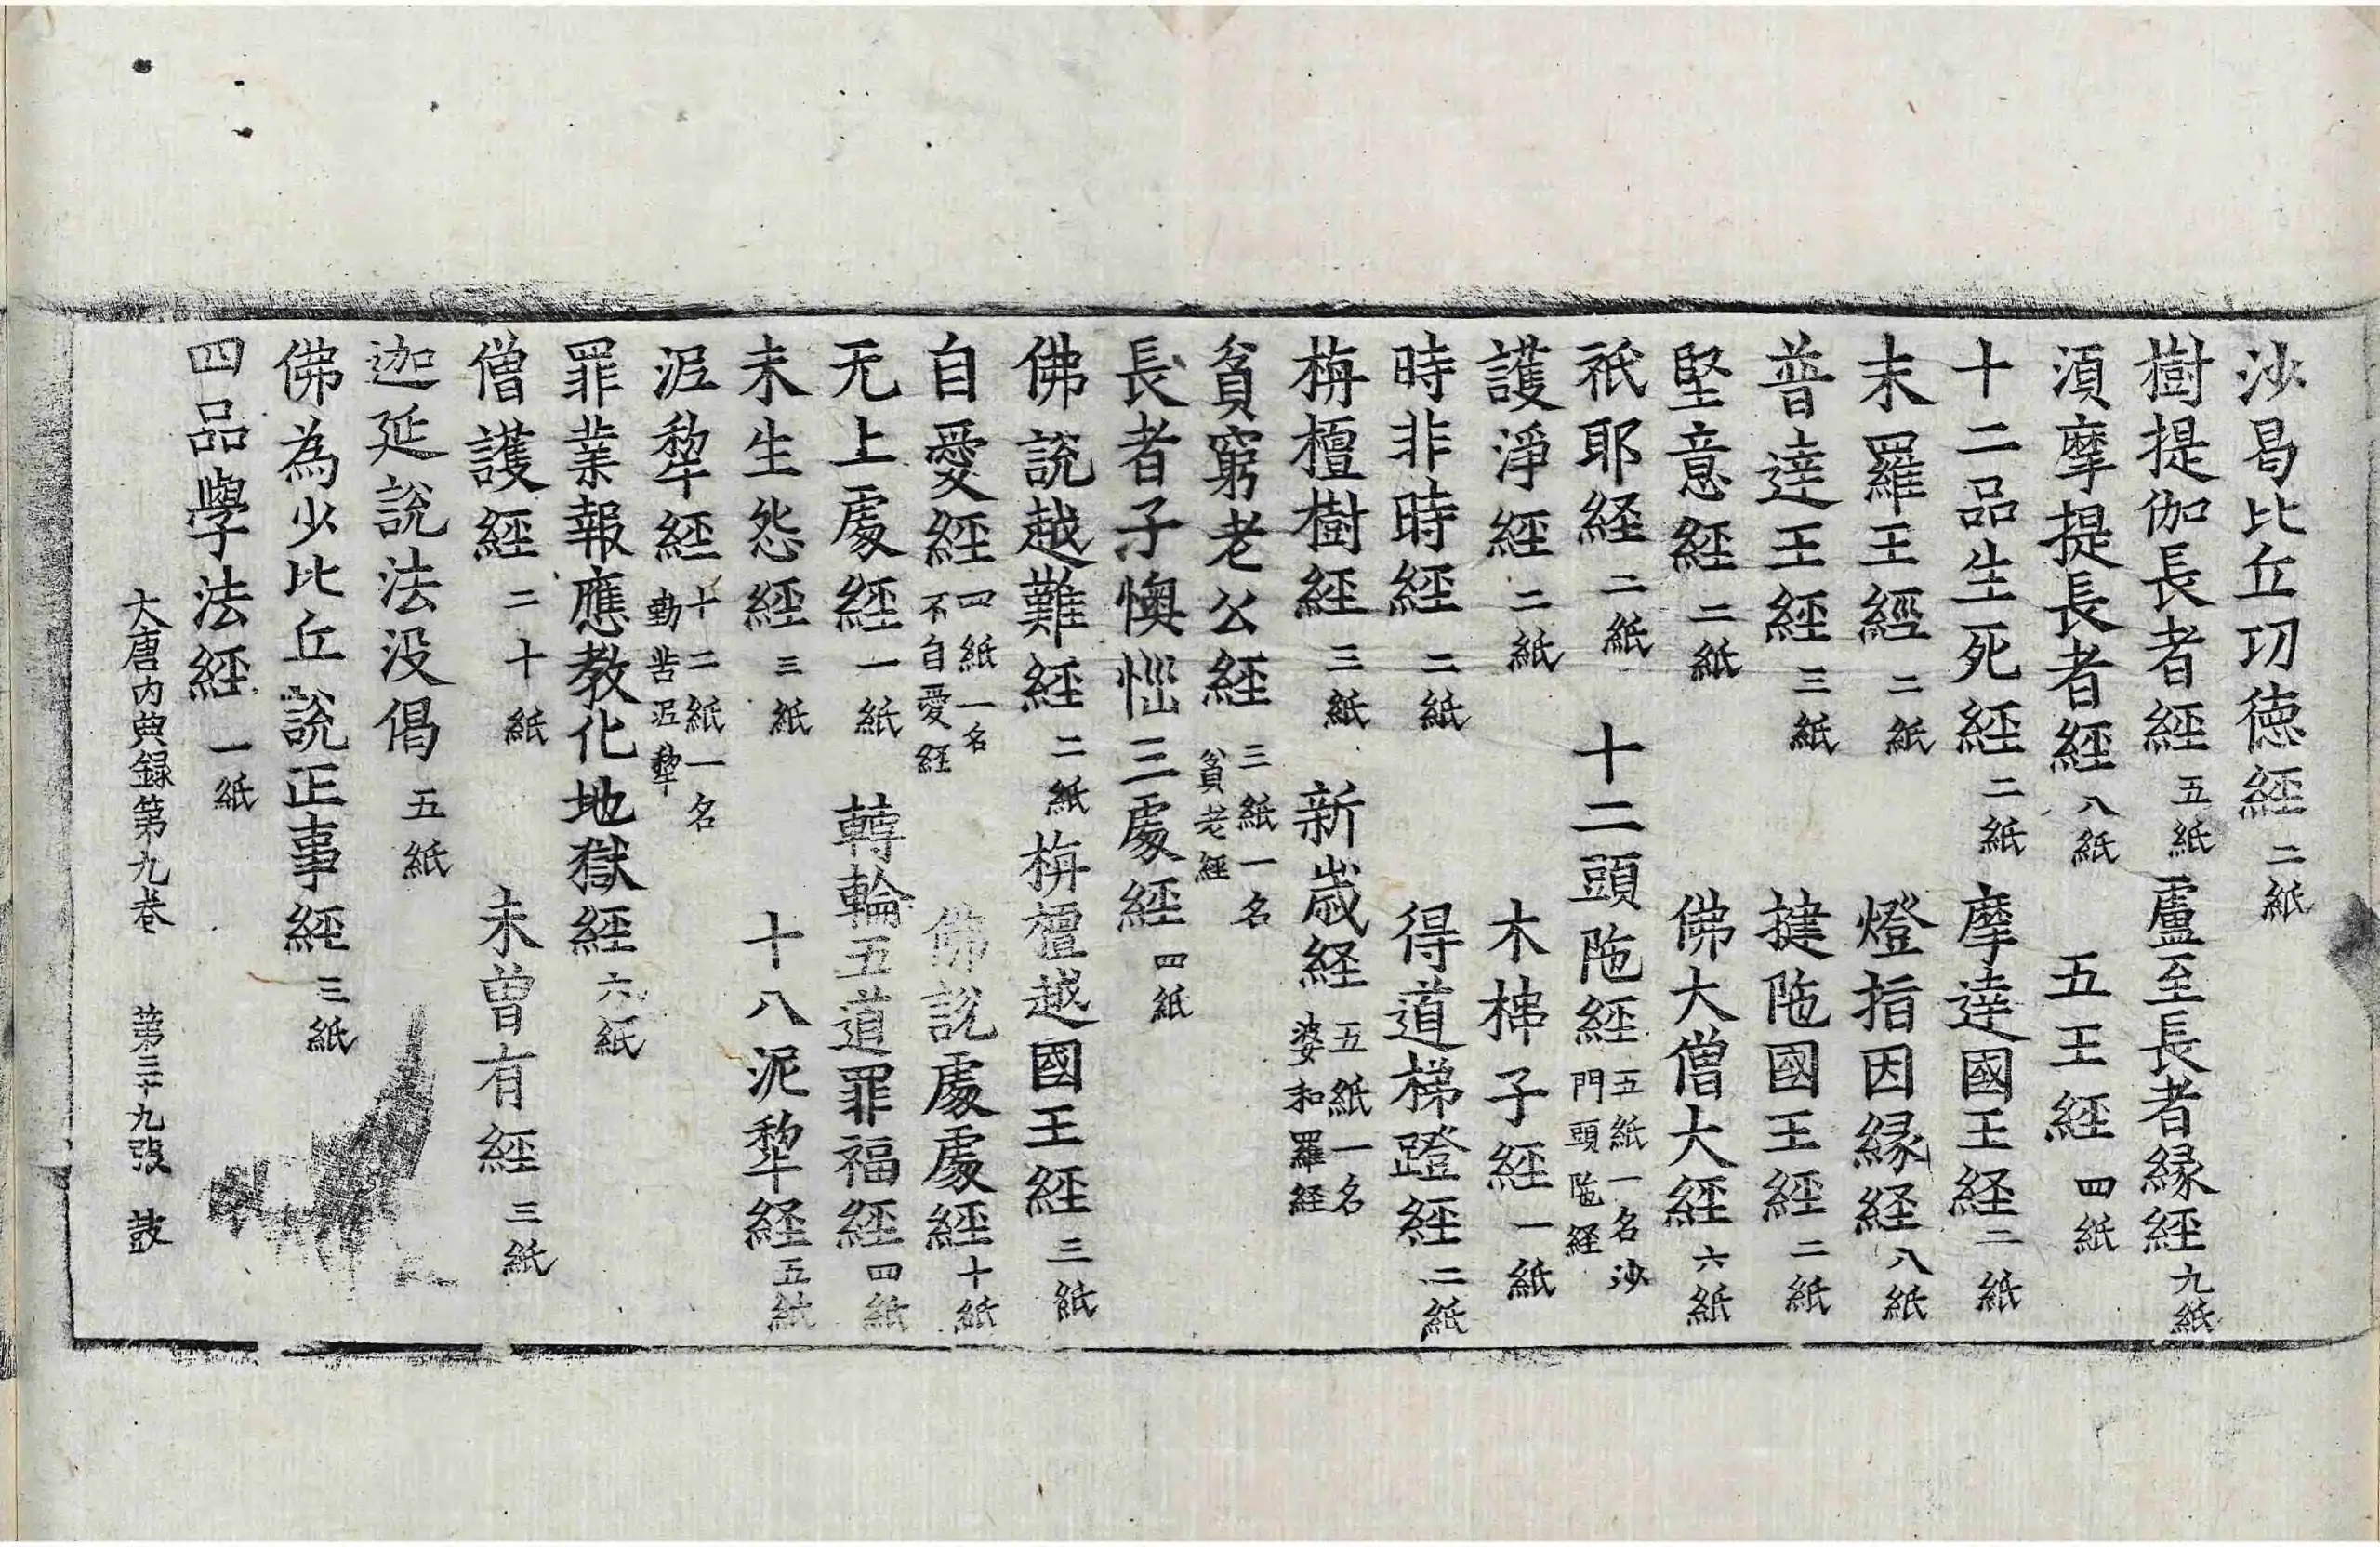 沙曷比丘功德經二紙
樹提伽長者經五紙盧至長者緣經九紙
湏摩提長者經八紙 五王經四紙
十二品生死經二紙 摩達國王経二紙
末羅王經二紙 燈指因緣経八紙
普達王經三紙 揵陁國王經二紙
堅意經二紙 佛大僧大經六紙
祇耶経二紙 十二頭陁経五紙一名沙門頭陁経
護淨經二紙 木槵子經一紙
時非時經二紙 得道梯蹬經二紙
栴檀樹經三紙 新歲経五紙一名婆和羅経
貧窮老公経三紙一名貧老經
長者子懊惱三處經四紙
佛說越難經二紙 栴檀越國王經三紙
自愛經四紙一名不自愛経 佛說處處經十紙
无上處經一紙 轉輪五道罪福經四紙
未生怨經三紙 十八泥犂経五紙
泥犂經十二紙一名勤苦泥犂
罪業報應教化地獄經六紙
僧護經二十紙 未曾有經三紙
迦延說法没偈五紙
佛為少比丘說正事經三紙
四品學法經一紙
大唐内典録第九卷 第三十九張 鼓